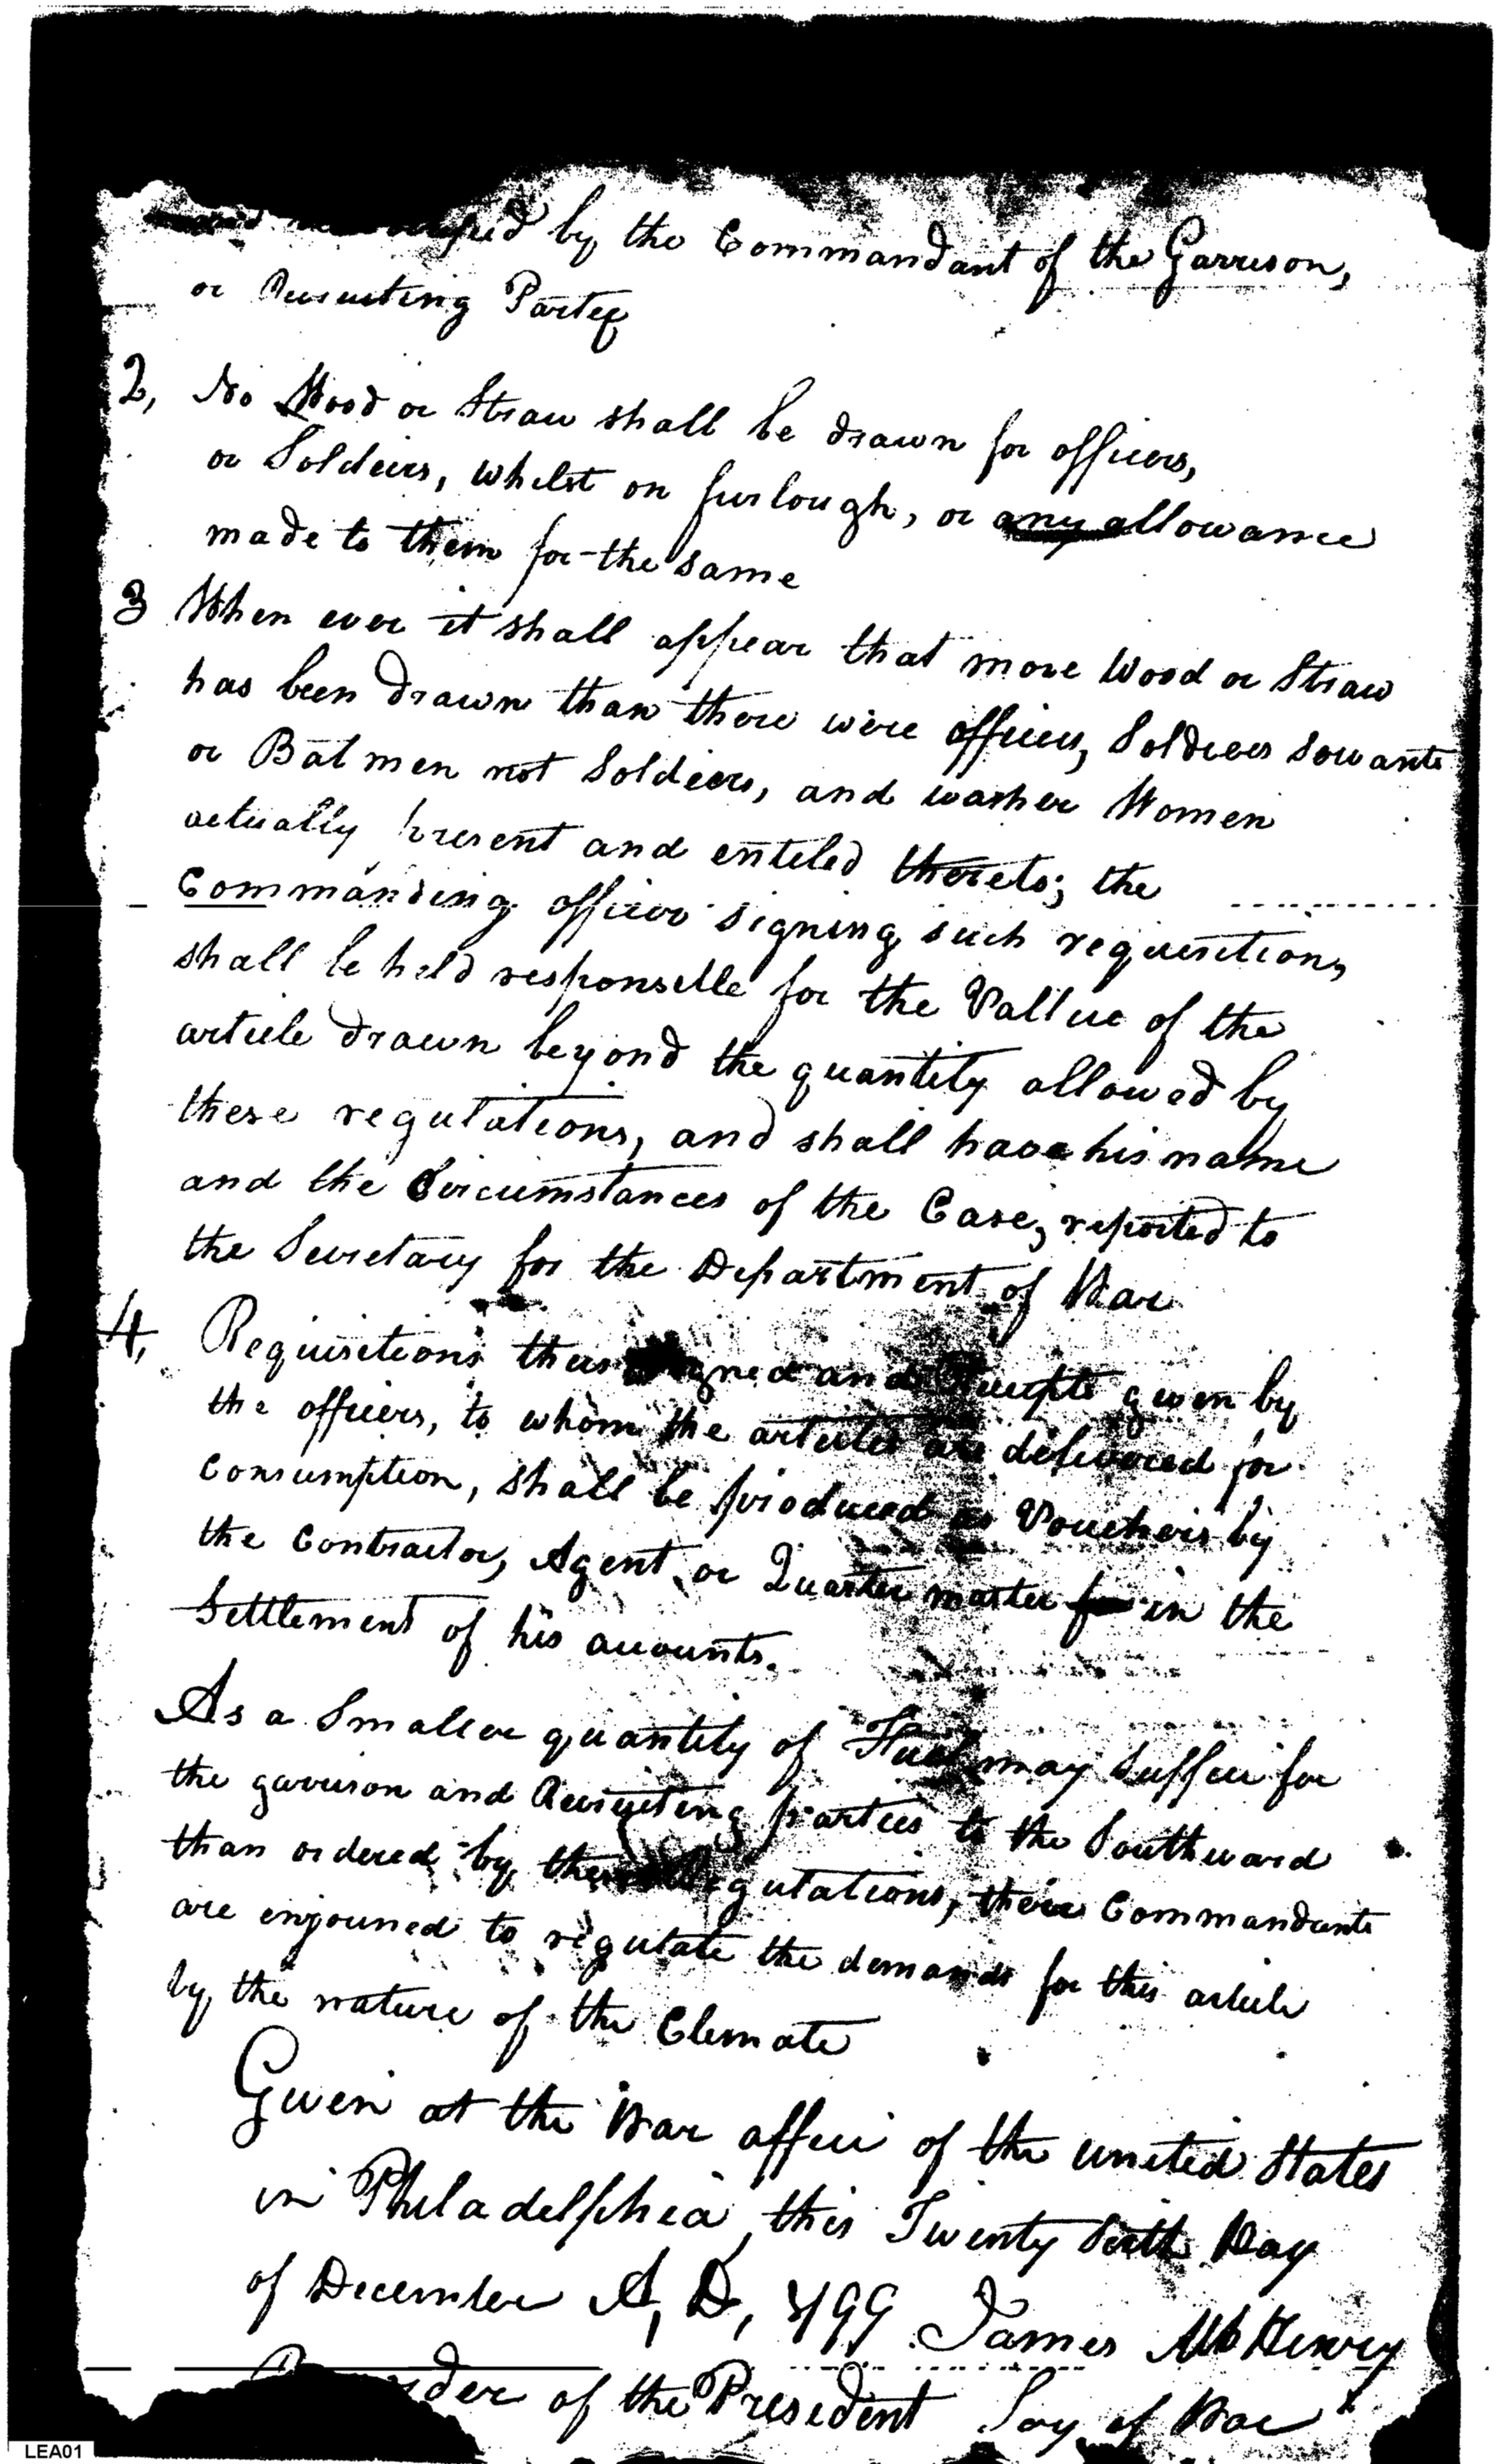 by the Commandant of the Garrison,
or Recruiting Party
2, No Wood or Straw shall be drawn for officers,
or Soldiers, whilst on furlough, or any allowance
made to them for the same
3 When ever it shall appear that more Wood or Straw
has been drawn than there were officers, Soldiers Servants
or Bat men not Soldiers, and washer Women
actually present and entiled thereto; the
Commanding officer signing such requisition,
shall be held responsible for the Vallue of the
article drawn beyond the quantity allowed by
these regulations, and shall have his name
and the Circumstances of the Case, reported to
the Secretary for the Department of War
4, Requisitions thus signed and Receipts given by
the officers, to whom the articles are delivered for
Consumption, shall be produced as Vouchers by
the Contractor, Agent, or Quarter master for in the
Settlement of his accounts.
As a Smaller quantity of Fuel may Suffice for
the garrison and Recruiting parties to the Southward
than ordered by these Regulations, their Commandants
are enjoined to regulate the demands for this article
by the nature of the Climate
Given at the War office of the united States
in Philadelphia, this Twenty Sixth Day
of December A, D, 1799 James McHenry
order of the President Secy of War
LEA01